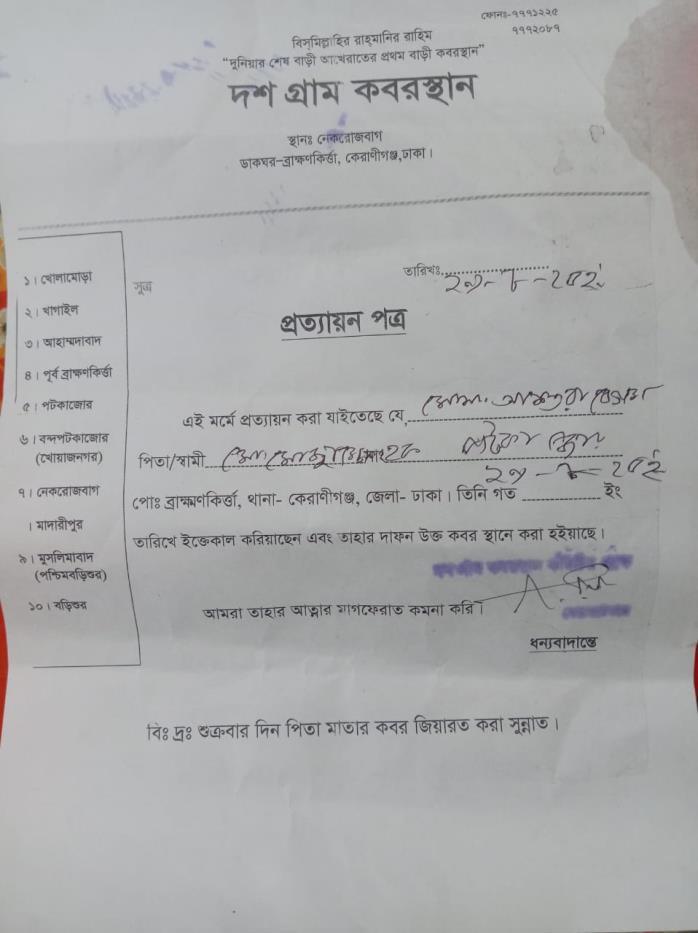 ফোনঃ-৭৭৭১২২৫
৭৭৭২০৮৭
বিসমিল্লাহির রাহমানির রাহিম
“দুনিয়ার শেষ বাড়ী আখেরাতের প্রথম বাড়ী কবরস্থান”
দশ গ্রাম কবরস্থান
স্থানঃ নেকরোজবাগ
ডাকঘর-ব্রাহ্মণকির্ত্তা, কেরাণীগঞ্জ,ঢাকা।
তারিখঃ
সূত্র
প্রত্যায়ন পত্র
১। খোলামোড়া
২। খাগাইল
৩। আহাম্মদাবাদ
৪। পূর্ব ব্রাহ্মণকির্ত্তা
৫। পটকাজোর
৬। বন্দপটকাজোর
(খোয়াজনগর)
৭। নেকরোজবাগ
। মাদারীপুর
৯। মুসলিমাবাদ
(পশ্চিমবড়িশুর)
১০। বড়িশুর
এই মর্মে প্রত্যায়ন করা যাইতেছে যে,
পিতা/স্বামী
পোঃ ব্রাহ্মণকির্ত্তা, থানা- কেরাণীগঞ্জ, জেলা- ঢাকা। তিনি গত ইং
তারিখে ইন্তেকাল করিয়াছেন এবং তাহার দাফন উক্ত কবর স্থানে করা হইয়াছে।
আমরা তাহার আত্মার মাগফেরাত কমনা করি।
ধন্যবাদান্তে
বিঃ দ্রঃ শুক্রবার দিন পিতা মাতার কবর জিয়ারত করা সুন্নাত।